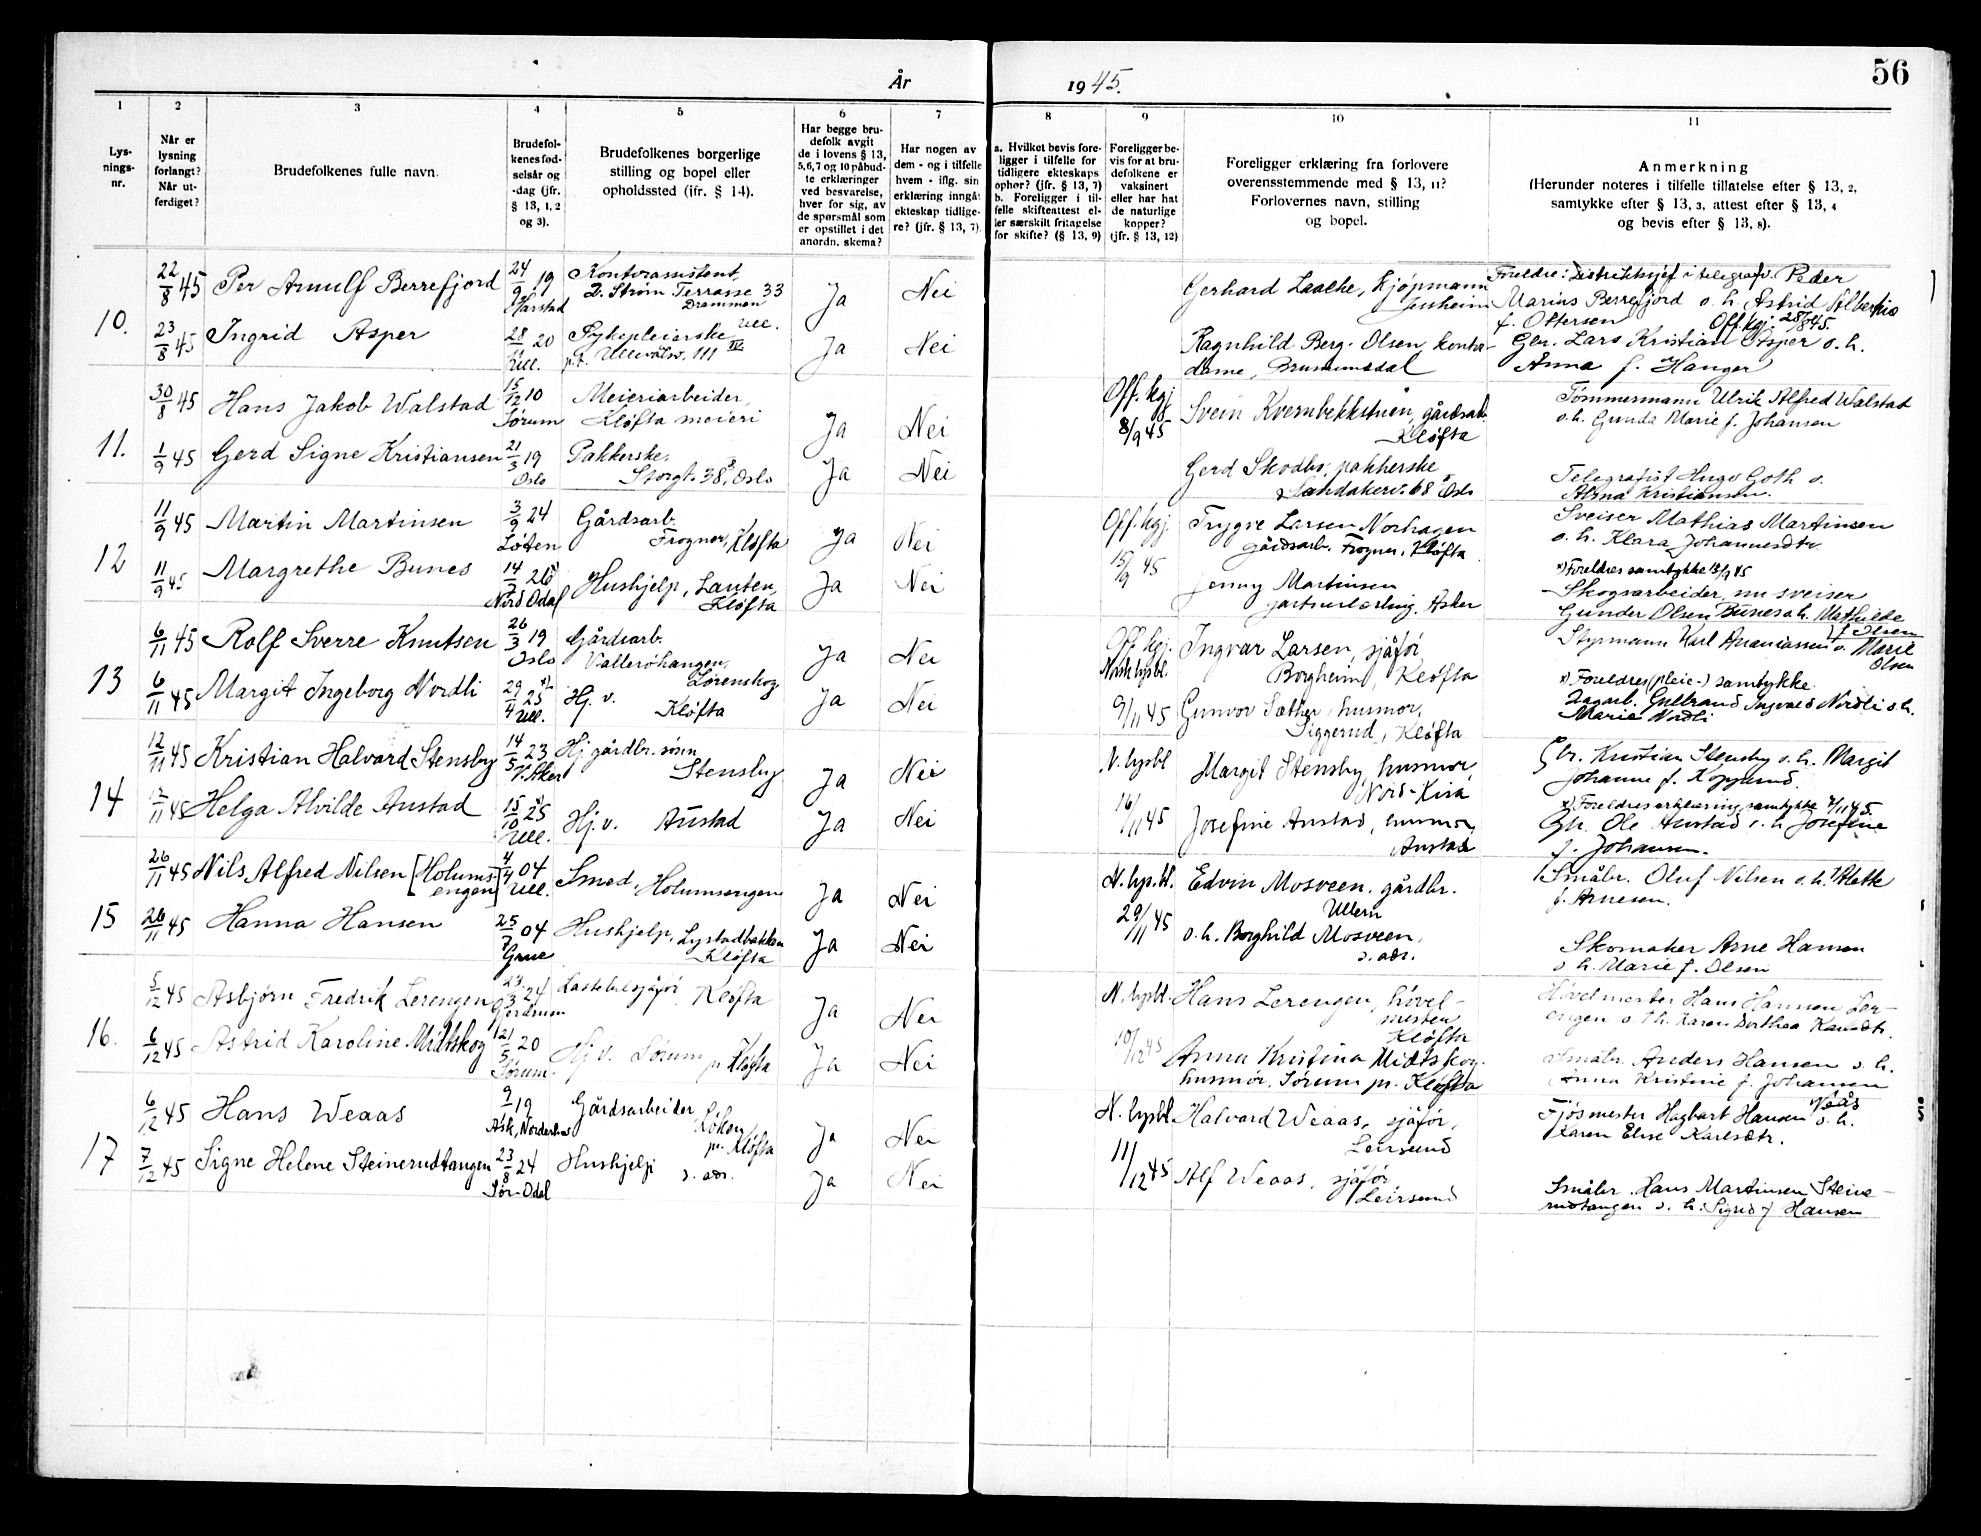 56
År 1945.
1 2 3 4 5 6 7 8 9 10 11
Lys-
nings-
nr.
Når er
lysning
forlangt?
Når ut-
ferdiget?
Brudefolkenes fulle navn.
Brudefol-
kenes fød-
selsår og
-dag (jfr.
§ 13, 1, 2
og 3).
Brudefolkenes borgerlige
stilling og bopel eller
opholdssted (jfr. § 14).
Har begge bru-
defolk avgit
de i lovens § 13,
5, 6, 7 og 10 påbud-
te erklæringer
ved besvarelse,
hver for sig, av
de spørsmål som
er opstillet i det
anordn. skema?
Har nogen av
dem - og i tilfelle
hvem - iflg. sin
erklæring inngåt
ekteskap tidlige-
re? (jfr. § 13, 7).
a. Hvilket bevis fore-
ligger i tilfelle for
tidligere ekteskaps
ophør? (jfr. § 13, 7)
b. Foreligger i til-
felle skifteattest el-
ler særskilt fritagelse
for skifte? (§ 13, 9)
Foreligger be-
vis for at bru-
defolkene er
vaksinert
eller har hat
de naturlige
kopper?
(jfr. § 13, 12)
Foreligger erklæring fra forlovere
overensstemmende med § 13, 11?
Forlovernes navn, stilling
og bopel.
Anmerkning
(Herunder noteres i tilfelle tillatelse efter § 13, 2,
samtykke efter § 13, 3, attest efter § 13, 4
og bevis efter § 13, 8).
10.
22/8 45 Per Arnulf Berrefjord 24/9 19 Harstad Kontorassistent, Q. Strøm Terrasse 33 Drammen Ja Nei Gerhard Laache, Kjøpmann Jessheim Foreldre: Distriktssjef i telegrafv. Peder
Marius Berrefjord o. h. Astrid Albertine
f. Ottersen Off. kgj. 28/8 45.
23/8 45 Ingrid Asper 28/ 20 Ull. Sykepleierske Ull. p.t. Ullevålsv. 111 IV Ja Nei Ragnhild Berg-Olsen, kontor-
dame, Brumunddal Gbr. Lars Kristian Asper o. h.
Anna f. Hanger
11.
30/8 45 Hans Jakob Walstad 15/12 10 Sørum Meieriarbeider, Kløfta meieri Ja Nei Off. kgj 8/9 45 Svein Kvernbekkstuen, gårdsarb. Kløfta Tømmermann Ulrik Alfred Walstad
o. h. Gunda Marie f. Johansen
1/9 45 Gerd Signe Kristiansen 21/3 19 Oslo Pakkerske, Storgt. 38, Oslo Ja Nei Gerd Skodbo, pakkerske
Sandakerv. 68 Oslo Telegrafist Hugo Goth o.
Alma Kristiansen.
12
11/9 45 Martin Martinsen 3/9 24 Løten Gårdsarb. Frogner, Kløfta Ja Nei Off. kgj. 15/9 45 Trygve Larsen Norhagen
gårdsarb. Frogner, Kløfta Sveiser Mathias Martinsen
o. h. Klara Johannesdtr
11/9 45 Margrethe Bunes 14/7 26 x) Nord Odal Hushjelp, Lauten, Kløfta Ja Nei Jenny Martinsen
gartnerlærling, Asker x) Foreldres samtykke 13/9 45
Skogsarbeider, nu sveiser
Gunder Olsen Bunes o. h. Mathilde
f. Olsen
13
6/11 45 Rolf Sverre Knutsen 26/3 19 Oslo Gårdsarb. Vallerøhangen, Lørenskog Ja Nei Off. kgj. Norsk lysbl. 9/11 45 Ingvar Larsen, sjåfør
Borgheim, Kløfta Styrmann Karl Ananiassen o. Marie
Olsen
6/11 45 Margit Ingeborg Nordli 29/4 25 x) Ull. Hj. v. Kløfta Ja Nei Gunvor Sæther, husmor,
Siggerud, Kløfta x) Foreldres (pleie-) samtykke
Sagarb. Gulbrand Ingvald Nordli o. h.
Marie Nordli
14
12/11 45 Kristian Halvard Stensby 14/5 23 V. Aker Hj. gårdbr. sønn Stensby Ja Nei N. lysbl 16/11 45 Margit Stensby, husmor,
Nord-Kisa Gbr. Kristian Stensby o. h. Margit
Johanne f. Kopperud.
12/11 45 Helga Alvilde Austad 15/10 25 x) Ull. Hj. v. Austad Ja Nei Josefine Austad, husmor,
Austad x) Foreldres erklæring, samtykke 7/11 45.
Gbr. Ole Austad o. h. Josefine
f. Johansen.
15
26/11 45 Nils Alfred Nilsen [Holums-
engen] 4/4 04 Ull. Smed, Holumsengen Ja Nei N. lys.bl. 29/11 45 Edvin Mosveen, gårdbr.
Ullern Småbr. Oluf Nilsen o. h.
f. Arnesen.
26/11 45 Hanna Hansen 25/7 04 Grue Hushjelp, Lystadbakken Kløfta Ja Nei o. h. Borghild Mosveen,
s. adr. Skomaker Arne Hansen
o h. Marie f. Olsen
16.
5/12 45 Asbjørn Fredrik Lerengen 23/3 24 Gjerdrum Lastebilsjåfør Kløfta Ja Nei N. lysbl. 10/12 45 Hans Lerengen, høvel-
mester
Kløfta Høvelmester Hans Hansen Ler-
engen o. h. Karen Dorthea
6/12 45 Astrid Karoline Midtskog 21/5 20 Sørum Hj. v. Sørum pr Kløfta Ja Nei Anna Kristina Midtskog
husmor, Sørum pr. Kløfta Småbr. Anders Hansen o. h.
Anna Kristine f. Johansen
17
6/12 45 Hans Weaas 9/ 19 Ask, Norderhov Gårdsarbeider Løken, pr. Kløfta Ja Nei N. lysbl 11/12 45 Halvard Weaas, sjåfør,
Leirsund Fjøsmester Hagbart Hansen Veås o. h.
Karen Elise Karlsdtr.
7/12 45 Signe Helene Steinerudtangen 23/8 24 Sør-Odal Hushjelp s. adr. Ja Nei Alf Weaas, sjåfør,
Leirsund Småbr. Hans Martinsen Steine-
rudtangen o. h. Sigrid f Hansen